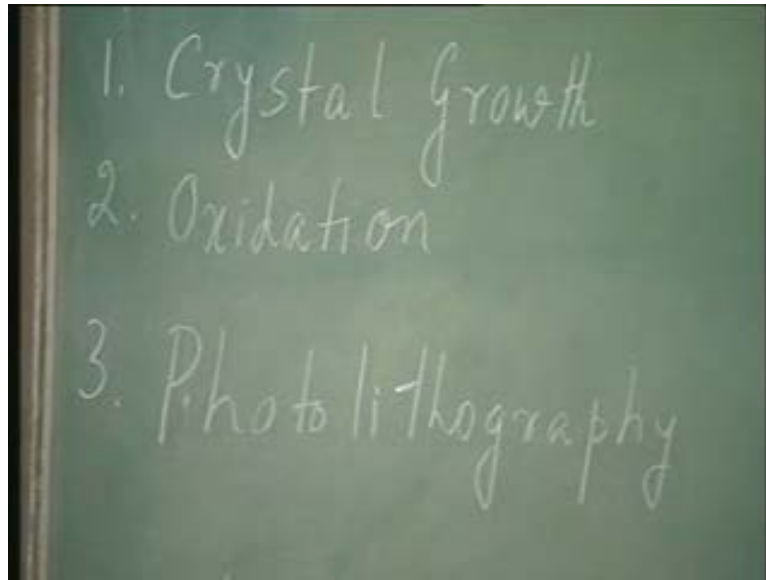 1. Crystal Growth
2. Oxidation
3. Photolithography